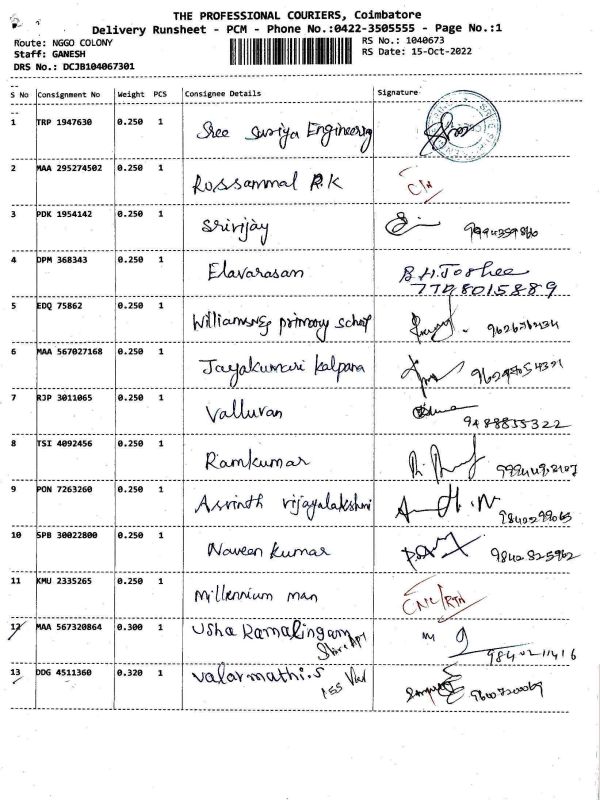 THE PROFESSIONAL COURIERS, Coimbatore
Delivery Runsheet - PCM - Phone No.:0422-3505555 - Page No.:1
Route: NGGO COLONY RS No.: 1040673
Staff: GANESH RS Date: 15-Oct-2022
DRS No.: DCJB104067301
S No Consignment No Weight PCS Consignee Details Signature
1 TRP 1947630 0.250 1 Sree Suriya Engineering
2 MAA 295274502 0.250 1 Rossammal P.K
3 PDK 1954142 0.250 1 Srivijay
4 DPM 368343 0.250 1 Elavarasan B.H.Joshee
7708015889
5 EDQ 75862 0.250 1 Williamsreg primary school
6 MAA 567027168 0.250 1 Jayakumari Kalpana
7 RJP 3011065 0.250 1 Valluvan
9488855322
8 TSI 4092456 0.250 1 Ramkumar
9 PON 7263260 0.250 1 Asvinth vijayalakshmi
10 SPB 30022800 0.250 1 Naveen kumar 9842825962
11 KMU 2335265 0.250 1 Millennium man
12 MAA 567320864 0.300 1 Usha Ramalingam
9840211416
13 DDG 4511360 0.320 1 Valarmathi.S 9600720069